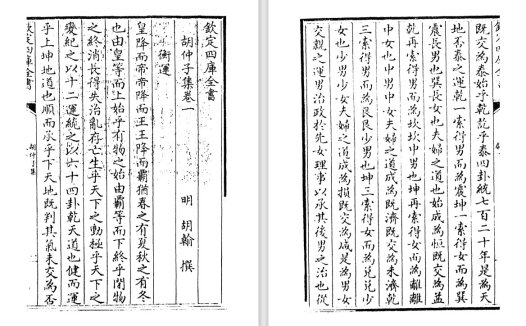 欽定四庫全書
胡仲子集卷一
明 胡翰 撰
衡運
皇降而帝帝降而王王降而霸猶春之有夏秋之有冬
也由皇等而上始乎有物之始由霸等而下終乎閉物
之終消長得失治亂存亡生乎天下之動極乎天下之
變紀之以十二運統之以六十四卦乾天道也健而運
乎上坤地道也順而承乎下天地既判其氣未交為否
欽定四庫全書
胡仲子集
既交為泰始乎乾訖乎泰四卦統七百二十年是為天
地否泰之運乾一索得男而為震坤一索得女而為巽
震長男也巽長女也夫婦之道也始成為恆既交為益
乾再索得男而為坎坎中男也坤再索得女而為離離
中女也中男中女夫婦之道成為既濟既交為未濟乾
三索得男而為艮艮少男也坤三索得女而為兌兌少
女也少男少女夫婦之道成為損既交為咸是為男女
交親之運男治政於先女理事以承其後男之治也從
欽定四庫全書